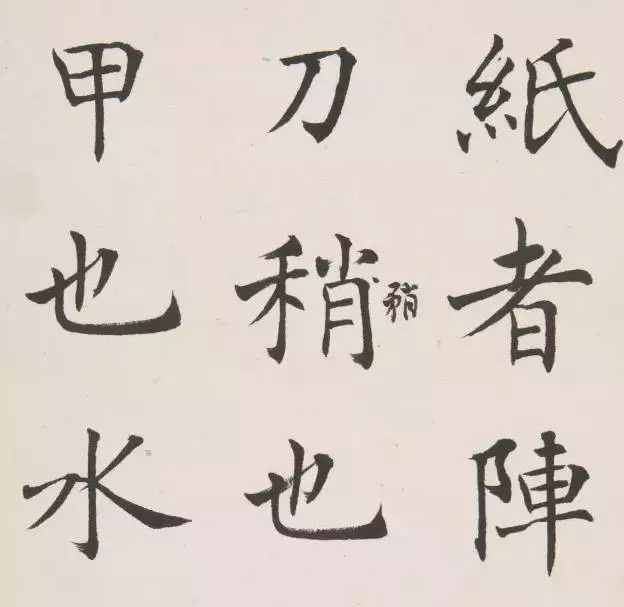 紙者陣
刀稍矟也
甲也水